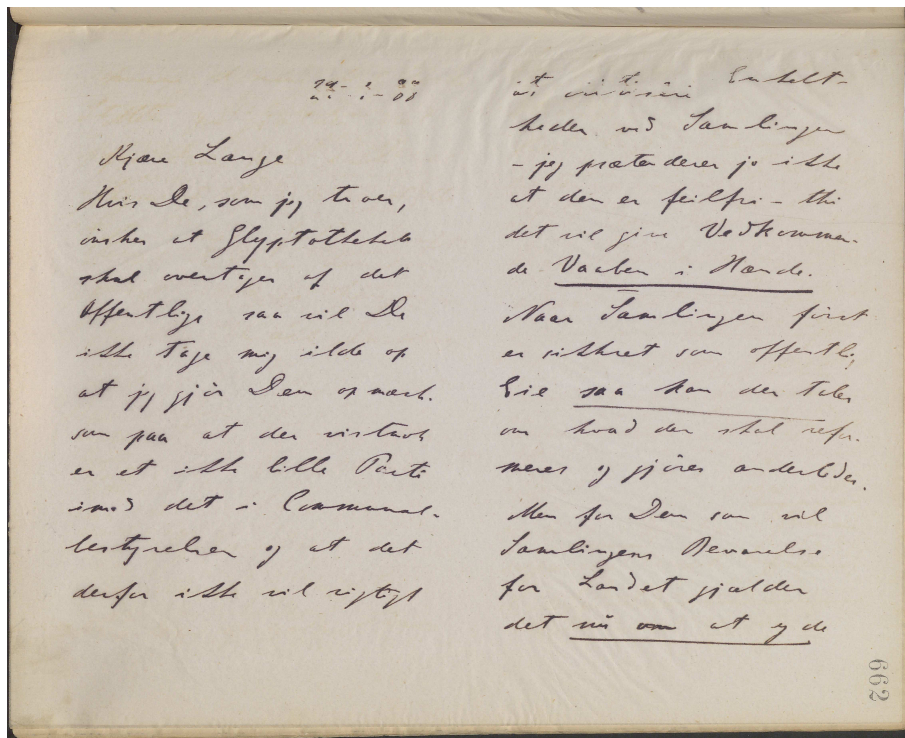 Kjære Lange
Hvis De, som jeg troer,
önsker at Glyptotheket
skal overtages af det
Offentlige saa vil De
ikke tage mig ilde op
at jeg gjör Dem opmærk-
som paa at der vistnok
er et ikke lille Parti
imod det i Communal-
bestyrelsen og at det
derfor ikke vil rigtigt
at Enkelt-
heder ved Samlingen
- jeg prætenderer jo ikke
at den er feilfri - thi
det vil give Vedkommen-
de Vaaben i Hænde.
Naar Samlingen först
er sikkret som offentlig
Eie saa kan der tales
om hvad der skal refor-
meres og gjöres anderledes.
Men for Dem som vil
Samlingens Bevarelse
for Landet gjælder
det nu om at yde
662